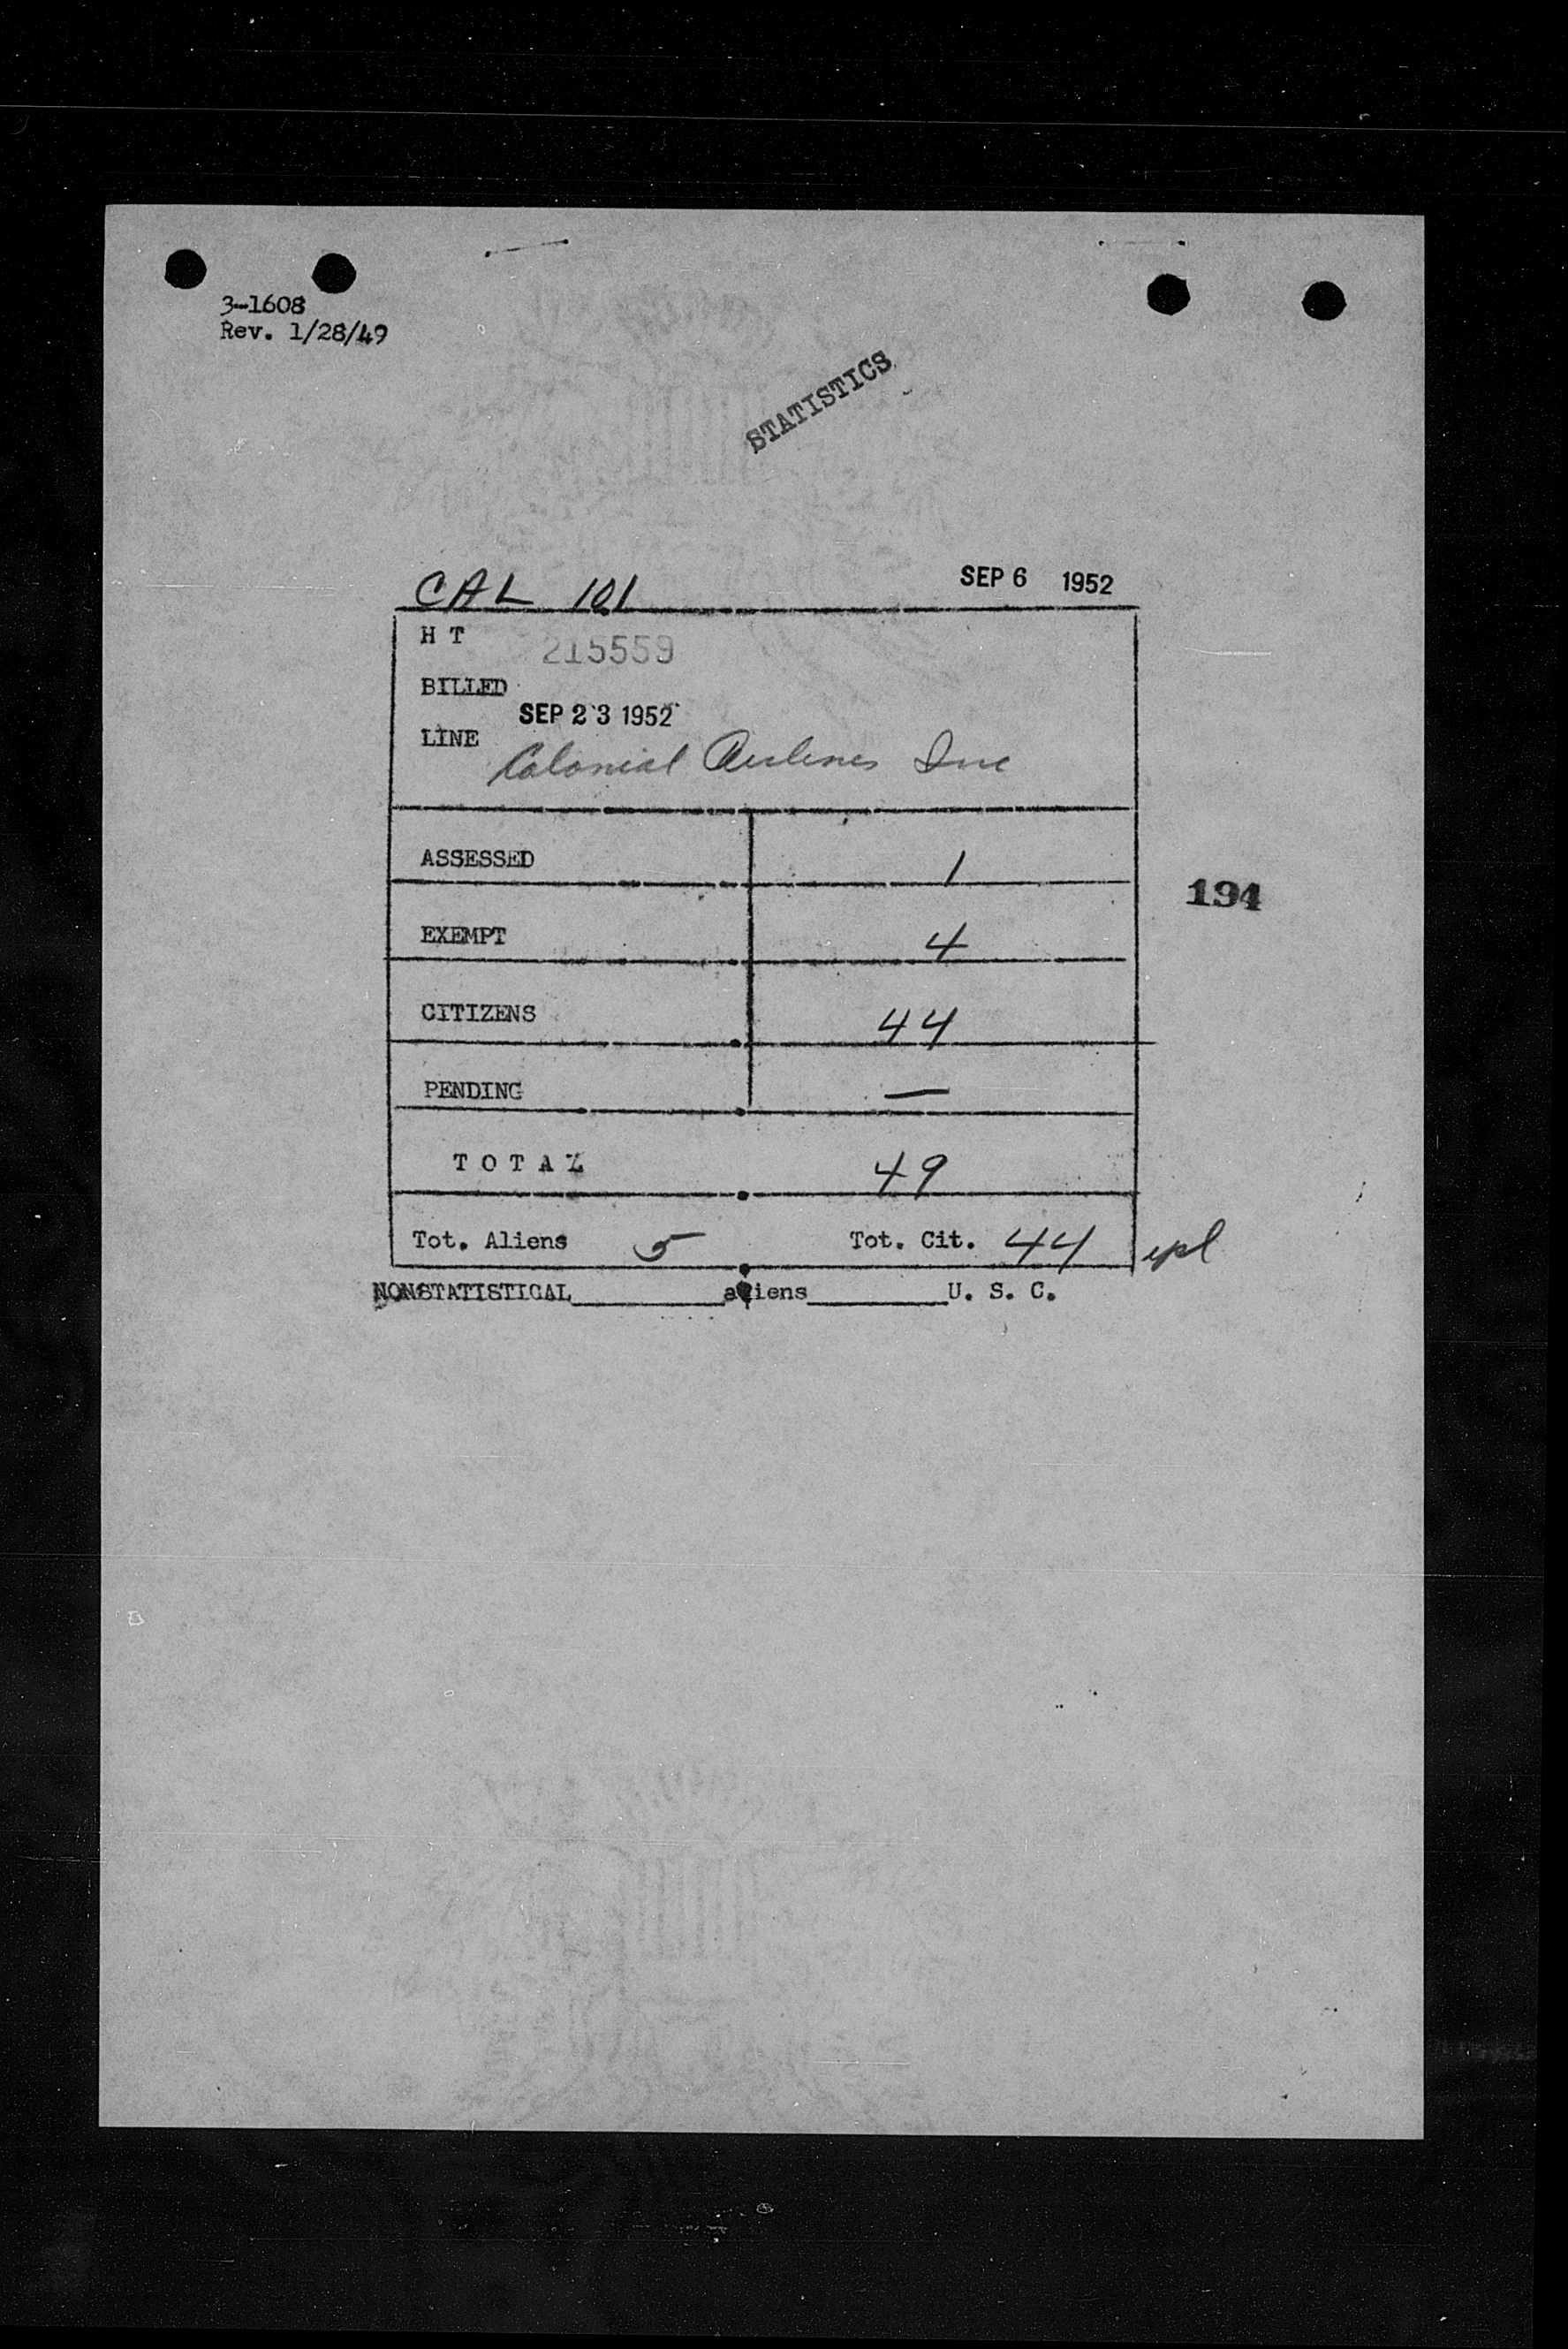 3-1608
Rev. 1/28/49
STATISTICS
CAL 101 SEP 6 1952
H T 215559
BILLED
SEP 23 1952
LINE Colonial Airlines Inc
ASSESSED 1
194
EXEMPT 4
CITIZENS 44
PENDING —
TOTAL 49
Tot. Aliens 5 Tot. Cit. 44
NONSTATISTICAL__________aliens__________U. S. C.